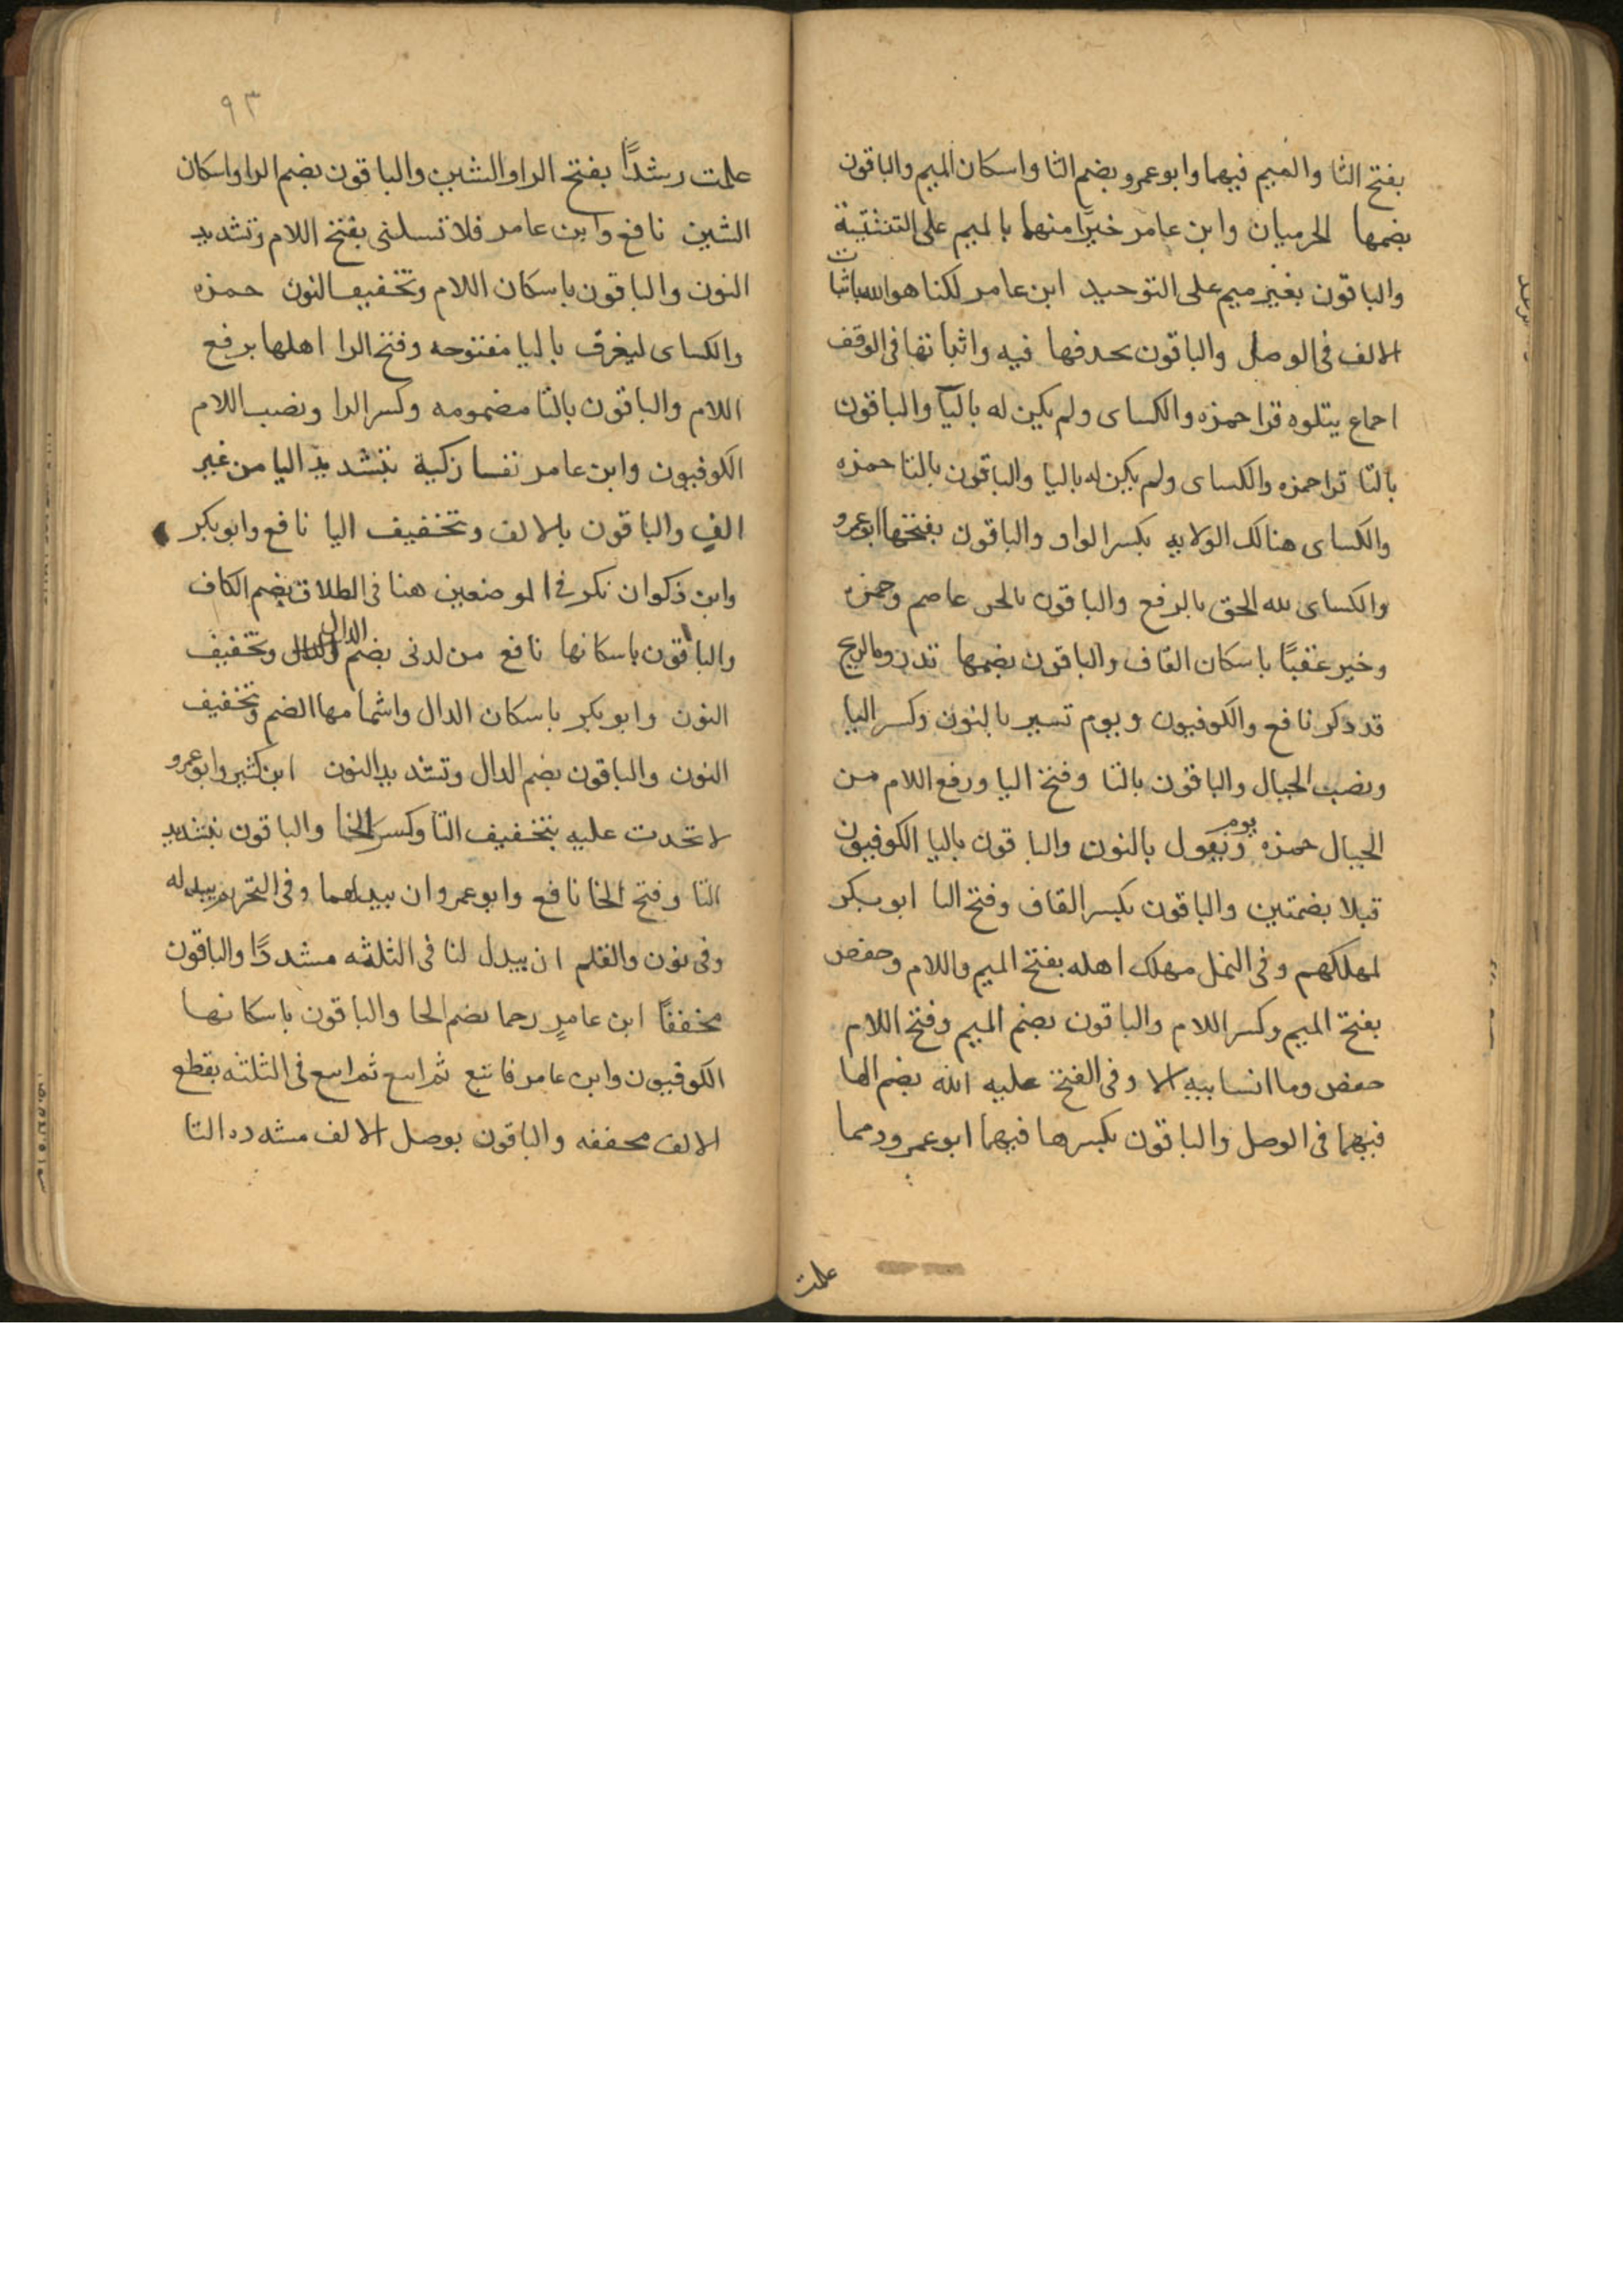 بفتح الثا والميم فيهما وابو عمرو بضم الثا واسكان الميم والباقون
بضمها الحرميان وابن عامر خيرًا منهما بالميم على التثنية
والباقون بغير ميم على التوحيد ابن عامر لكنا هو الله باثبات
الالف فى الوصل والباقون بحدفها فيه واثباتها فى الوقف
احماع يتلوه قرا حمزه والكساى ولم يكن له باليآ والباقون
بالتا قرا حمزه والكساى ولم يكن له باليا والباقون بالتا حمزه
والكساى هنالك الولايه بكسر الواو والباقون بفتحها ابو عمرو
والكساى لله الحق بالرفع والباقون بالجر عاصم وحمزه
وخير عقبًا باسكان القاف والباقون بضمها تدروه الريح
قد دكر نافع والكوفيون ويوم تسير بالنون وكسر اليا
ونصب الجبال والباقون بالتا وفتح اليا ورفع اللام من
الجبال حمزه ويوم نقول بالنون والباقون باليا الكوفيون
قبلا بضمتين والباقون بكسر القاف وفتح البا ابو بكر
لمهلكهم وفى النمل مهلك اهله بفتح الميم واللام وحفص
بفتح الميم وكسر اللام والباقون بضم الميم وفتح اللام
حفص وما انسانيه الا وفى الفتح عليه الله بضم الها
فيهما فى الوصل والباقون بكسرها فيهما ابو عمرو ومما
علمت
٩٣
علمت رشدًا بفتح الرا والشين والباقون بضم الرا واسكان
الشين نافع وابن عامر فلا تسلنى بفتح اللام وتشديد
النون والباقون باسكان اللام وتخفيف النون حمزه
والكساى ليغرق باليا مفتوحه وفتح الرا اهلها برفع
اللام والباقون بالتا مضمومه وكسر الرا ونصب اللام
الكوفيون وابن عامر نفسا زكية بتشديد اليا من غير
الف والباقون بالالف وتخفيف اليا نافع وابو بكر
وابن ذكوان نكر فى الموضعين هنا فى الطلاق بضم الكاف
والباقون باسكانها نافع من لدنى بضم الدال وتخفيف
النون وابو بكر باسكان الدال واشمامها الضم وتخفيف
النون والباقون بضم الدال وتشديد النون ابن كثير وابو عمرو
لا تخدت عليه بتخفيف التا وكسر الخا والباقون بتشديد
التا وفتح الخا نافع وابو عمرو ان يبدلهما وفى التحريم يبدله
وفى نون والقلم ان يبدل لنا فى الثلثه مشددًا والباقون
مخففًا ابن عامرٍ رحما بضم الحا والباقون باسكانها
الكوفيون وابن عامر فاتبع ثم اتبع ثم اتبع فى الثلثه بقطع
الالف مخففه والباقون بوصل الالف مشدده التا